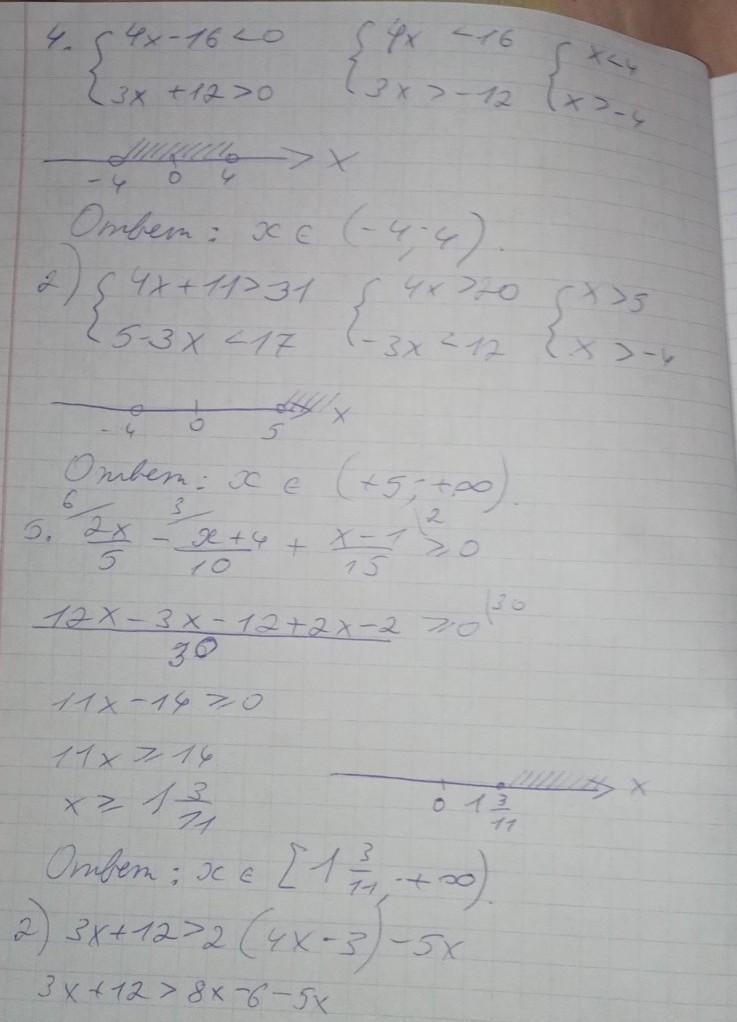 4. { 4x-16<0 { 4x <16 { x<4
3x+12>0 3x>-12 x>-4
-4 0 4 x
Ответ: x ∈ (-4; 4).
2) { 4x+11>31 { 4x>20 { x>5
5-3x<17 -3x<12 x>-4
-4 0 5 x
Ответ: x ∈ (+5; +∞).
5. 6/ 2x/5 - 3/ (x+4)/10 + (x-1)/15 \2 ≥0
(12x-3x-12+2x-2)/30 ≥0 |30
11x-14≥0
11x≥14
x≥ 1 3/11
0 1 3/11 x
Ответ: x ∈ [1 3/11; +∞).
2) 3x+12>2(4x-3)-5x
3x+12>8x-6-5x